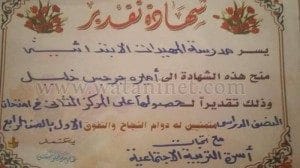 شهادة تقدير
يسر مدرسة المجيدات الابتدائية
منح هذه الشهادة الى أميره جرجس خليل
وذلك تقديراً لحصولها على المركز الثانى فى امتحان
النصف الدراسى متمنين له دوام النجاح والتفوق الاول بالصف الرابع
مع تحيات
أسرة التربية الاجتماعية
يعتمد
www.wataninet.com